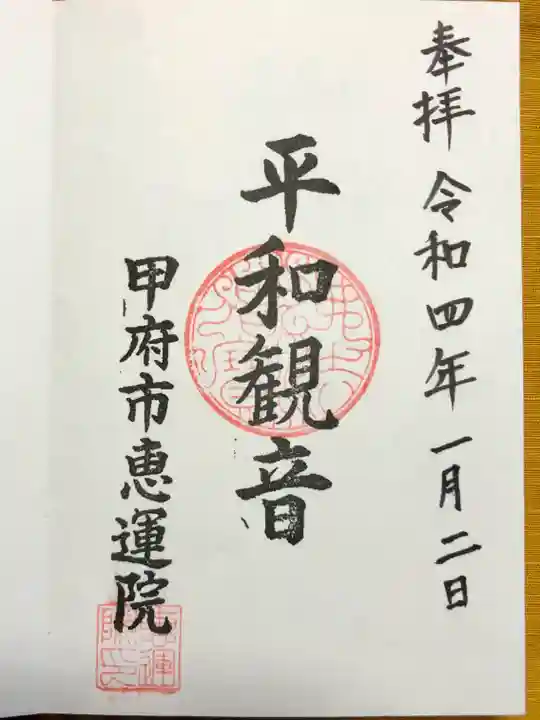 奉拝 令和四年 一月二日
平和観音
甲府市恵運院